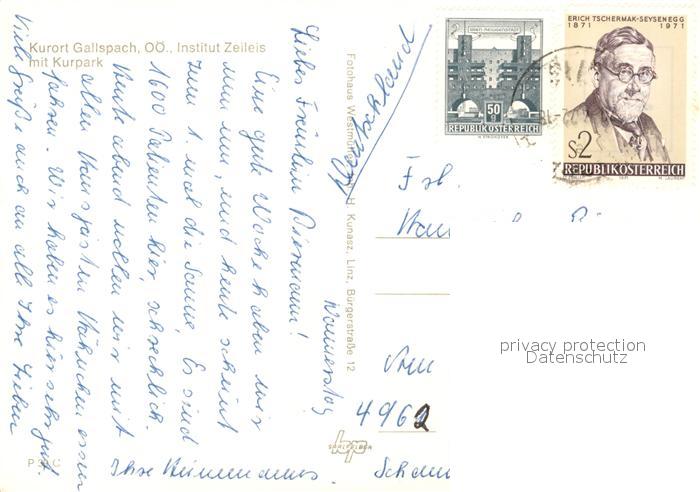 Kurort Gallspach, OÖ., Institut Zeileis
mit Kurpark
Donnerstag
Liebes Fräulein
Eine gute Woche haben wir
nun um, und heute scheint
zum 1. mal die Sonne. Es sind
1600 Patienten hier, schrecklich.
Heute abend wollen wir mit
allen Hausgästen Hähnchen essen
fahren. Wir haben es hier sehr gut.
Viele Grüße auch an all Ihre Lieben
Ihre
Fotohaus Westmüller H. Kunasz, Linz, Bürgerstraße 12
Deutschland
WIEN-HEILIGENSTADT
50 g
REPUBLIK ÖSTERREICH
ERICH TSCHERMAK-SEYSENEGG
1871 1971
S2
REPUBLIK ÖSTERREICH
Frl.
privacy protection
Datenschutz
4962
bp